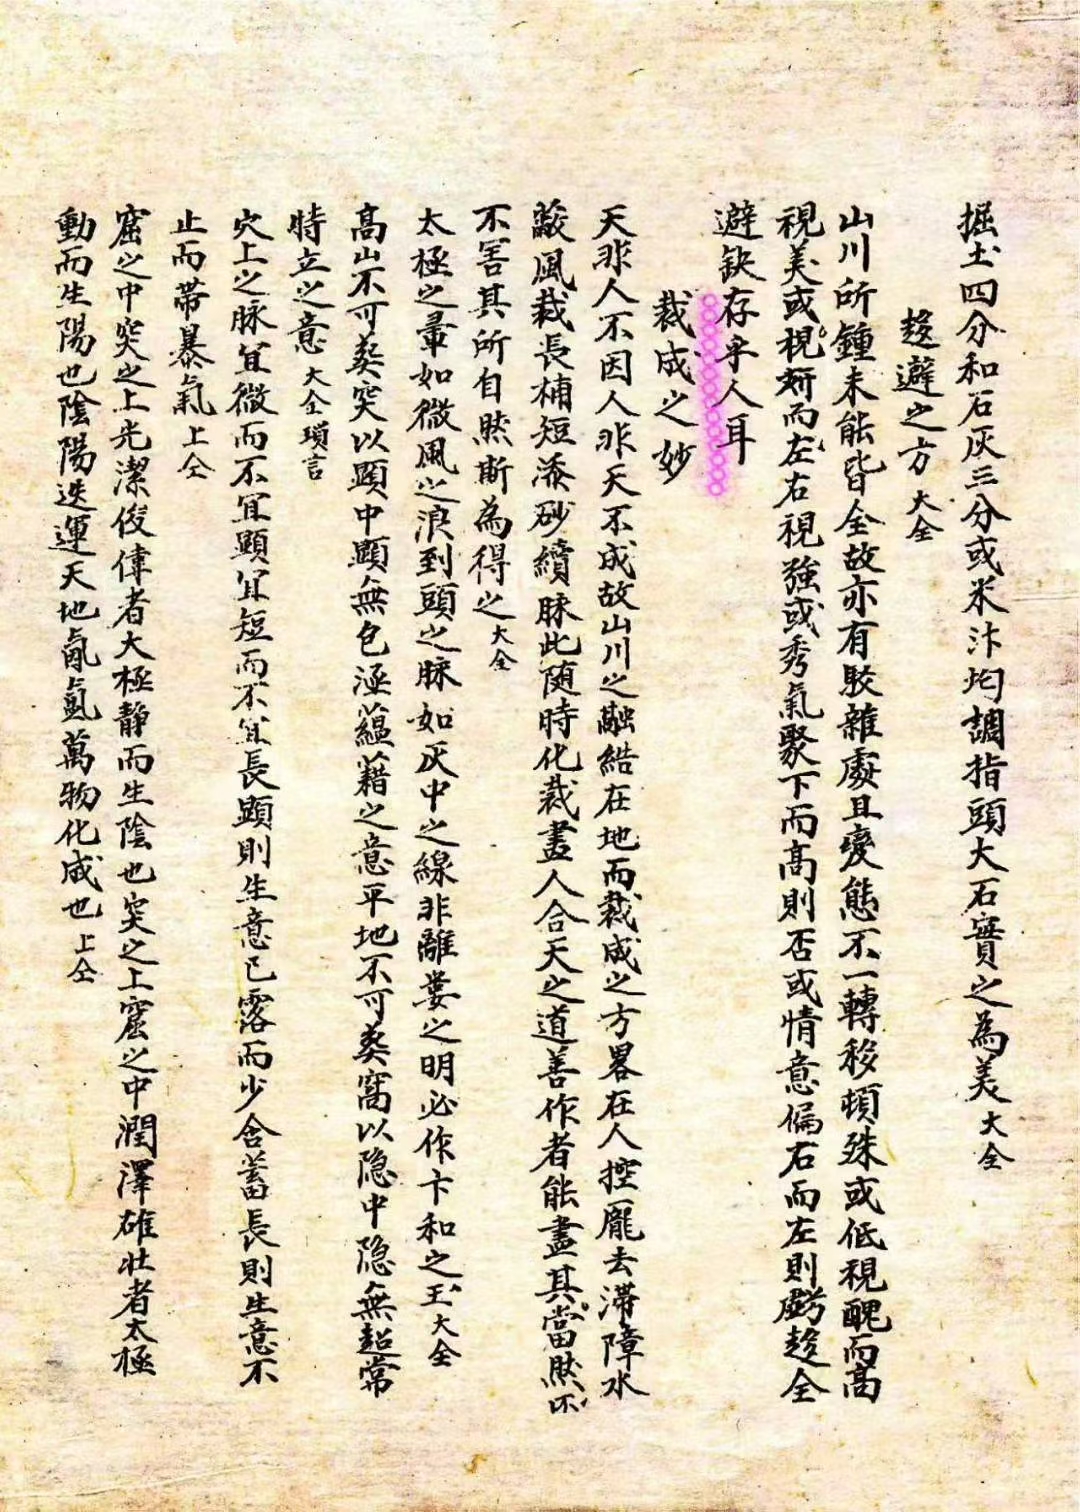 掘土四分和石灰三分或米汁均調指頭大石實之為美大全
趍避之方大全
山川所鍾未能皆全故亦有駁雜處且變態不一轉移頓殊或低視醜而高
視美或視妍而左右視強或秀氣聚下而高則否或情意偏右而左則虧趍全
避缺存乎人耳
裁成之妙
天非人不因人非天不成故山川之融結在地而裁成之方畧在人控龐去滞障水
蔽風裁長補短添砂續脉此随時化裁盡人合天之道善作者能盡其當然不
不害其所自然斯為得之大全
太極之暈如微風之浪到頭之脉如灰中之線非離婁之明必作卞和之玉大全
高山不可葬突以顯中顯無包涵蘊藉之意平地不可葬窩以隐中隐無超常
特立之意大全瑣言
穴上之脉宜微而不宜顯宜短而不宜長顯則生意已露而少含蓄長則生意不
止而帶暴氣上仝
窟之中突之上光潔俊偉者大極静而生陰也突之上窟之中潤澤雄壮者太極
動而生陽也陰陽迭運天地氤氳萬物化成也上仝